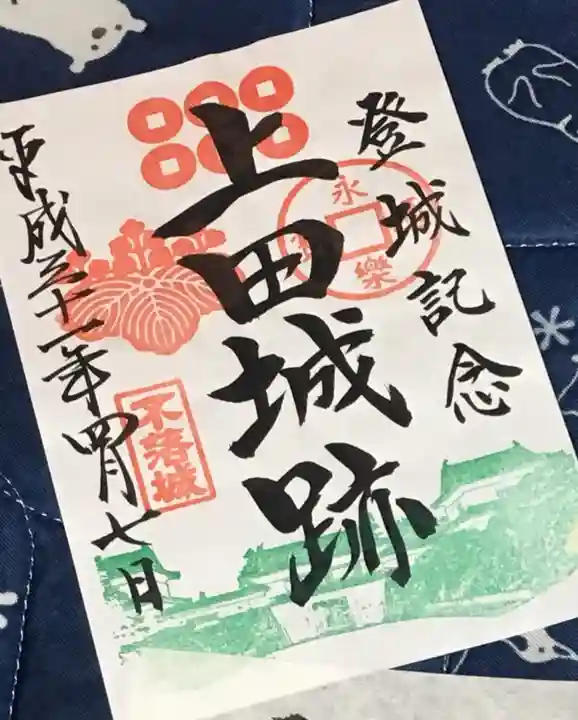 登城記念
上田城跡
平成三十一年四月七日
永樂
不落城